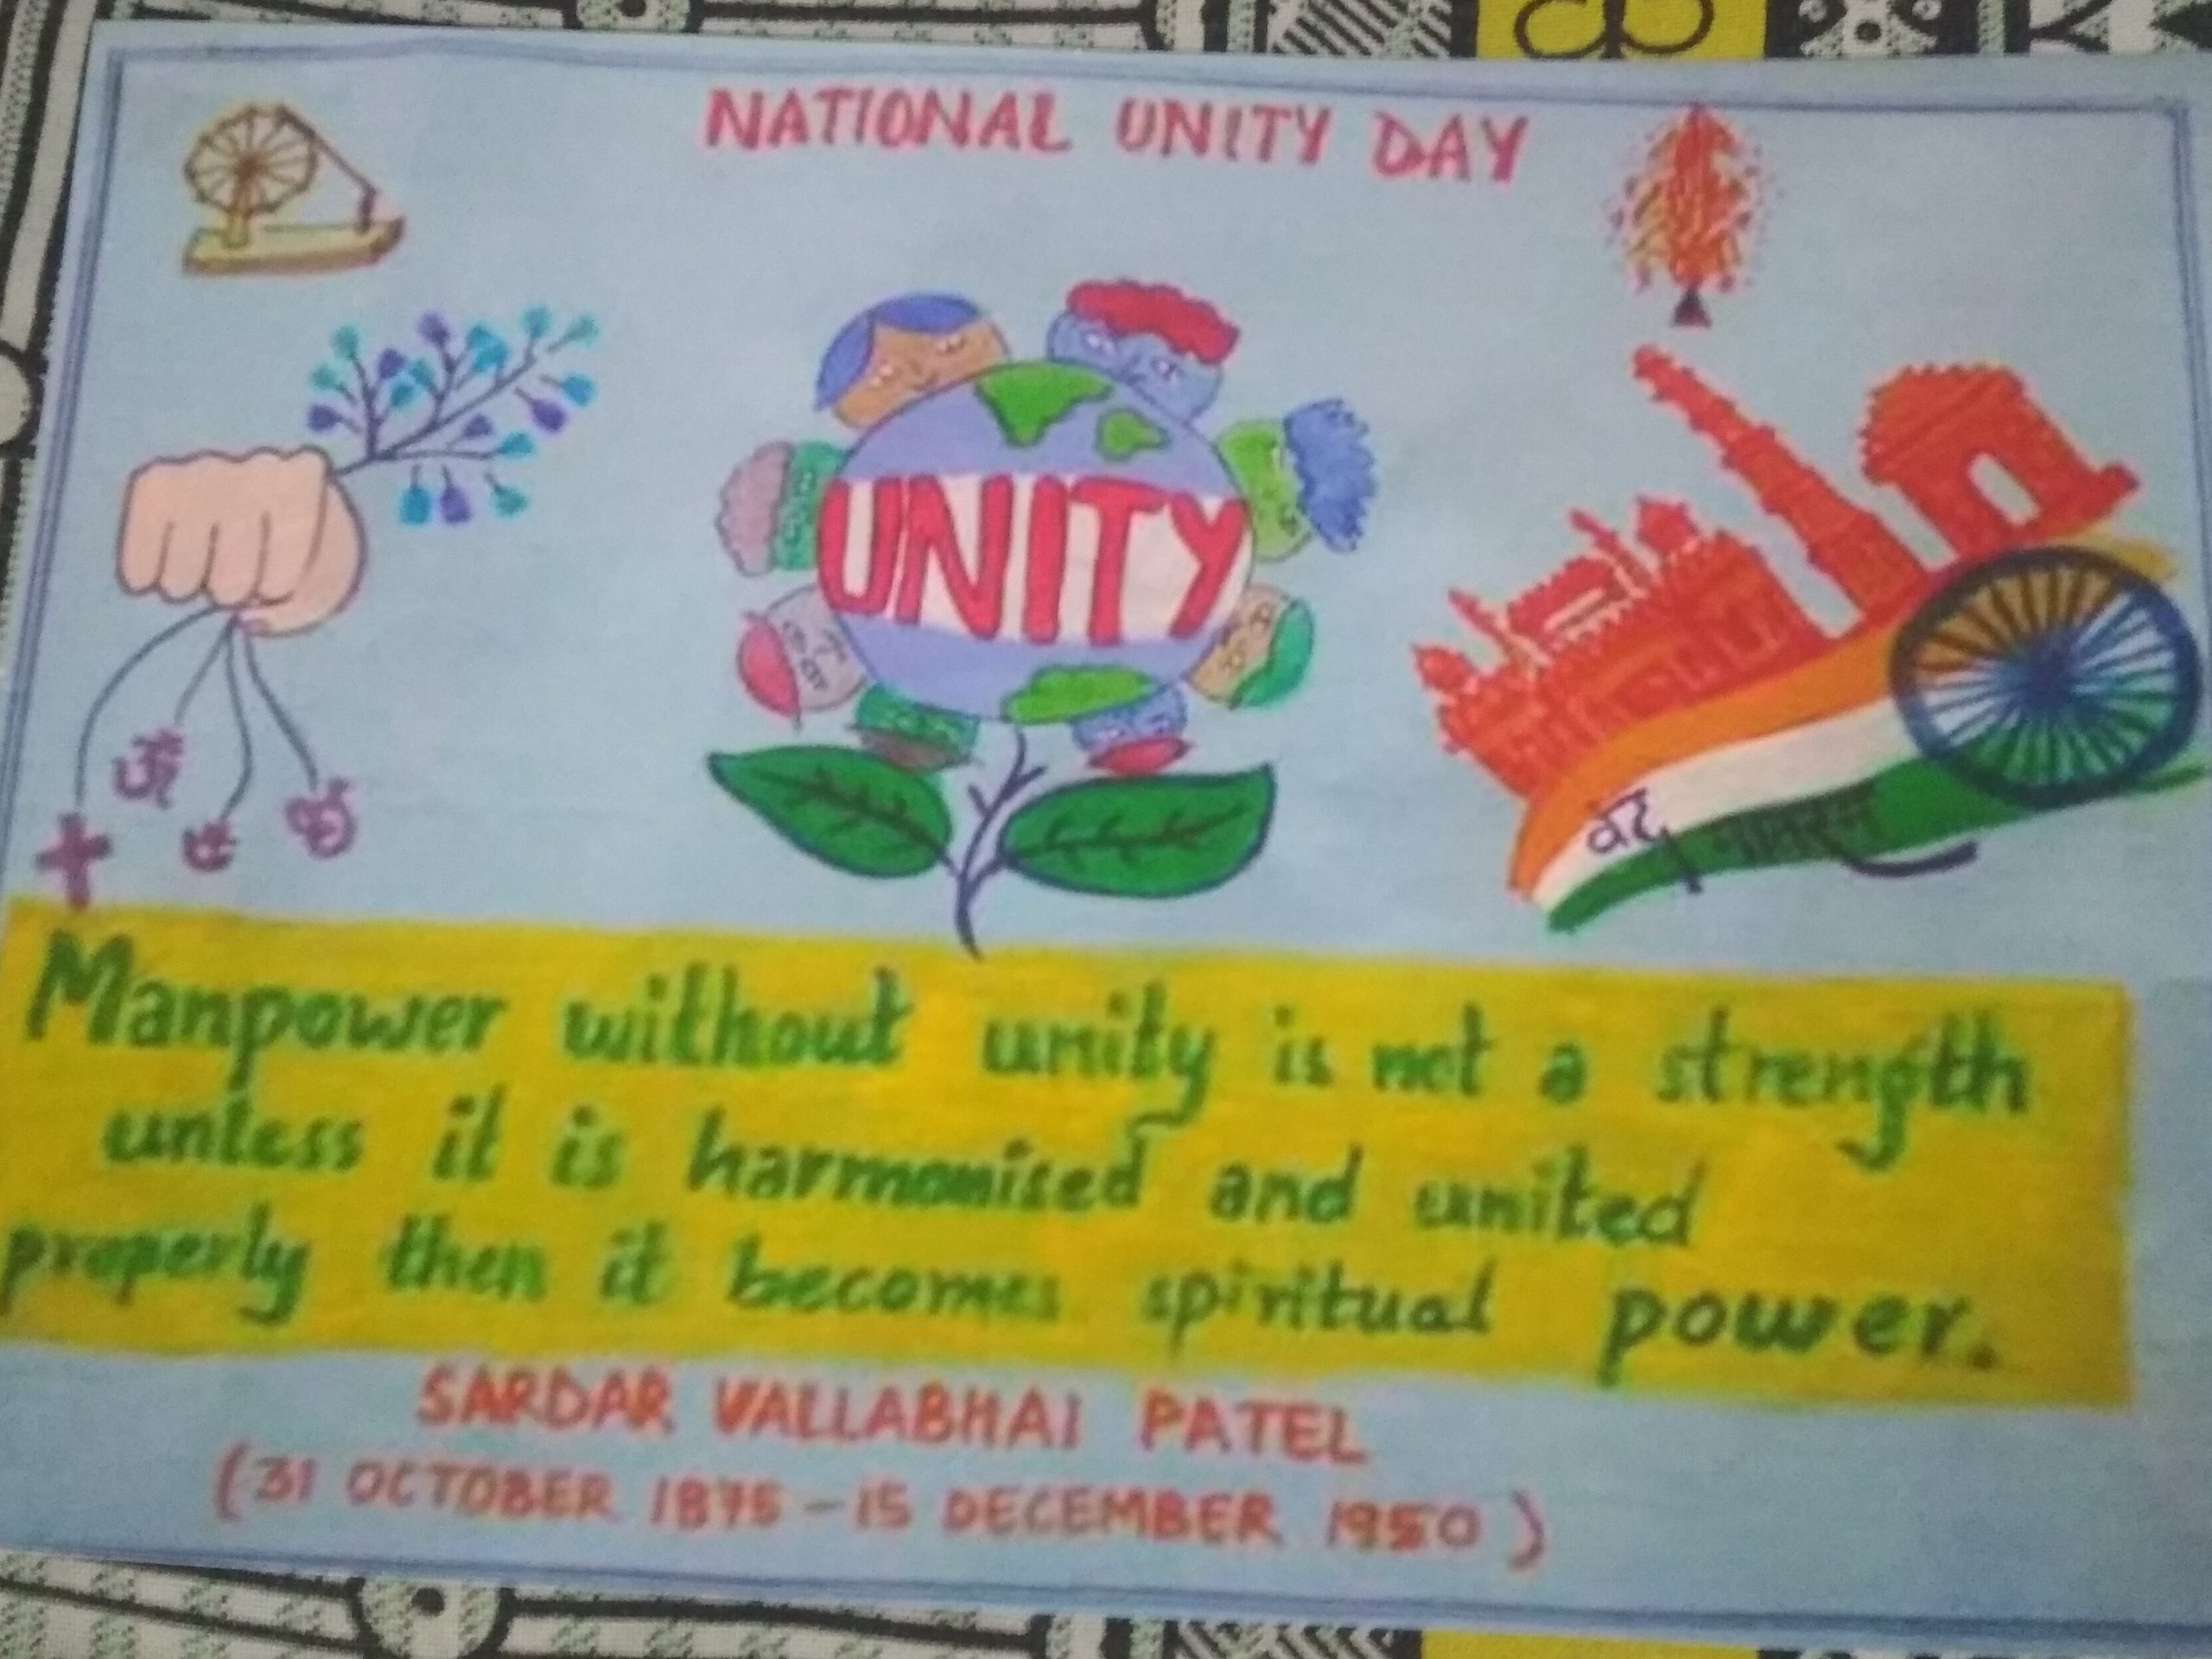 NATIONAL UNITY DAY
UNITY
ॐ
वन्दे मातरम्
Manpower without unity is not a strength
unless it is harmonised and united
properly then it becomes spiritual power.
SARDAR VALLABHAI PATEL
(31 OCTOBER 1875 - 15 DECEMBER 1950)